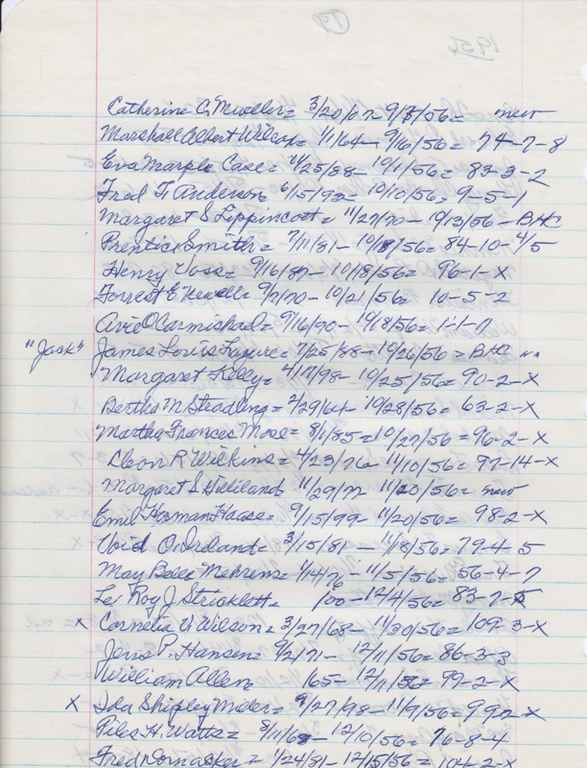 1956
Catherine C. Mueller = 3/20/02 9/7/56 = meut
Marshall Albert Wilcox = 1/1/64 - 9/16/56 = 74-7-8
Eva Marple Case = 11/25/88 - 10/1/56 = 83-3-2
Fred F. Anderson 6/15/92 = 10/10/56, 9-5-1
Margaret S Lippincott = 11/27/70 - 10/13/56 -
Prentice Smith = 7/11/81 - 10/ /56 = 84-10-4/5
Henry Voss = 9/16/87 - 10/18/56 = 96-1-X
Forrest E. Newell = 9/7/70 - 10/21/56 = 10-5-2
Avie O Carmichael = 9/16/90 - 10/18/56 = 1-1-17
"Jack" James Louis = 7/25/88 - 10/26/56 =
Margaret Kelly = 4/17/98 - 10/25/56 = 90-2-X
Bertha M Stradling = 2/29/64 - 10/28/56 = 63-2-X
Martha Frances Mose = 8/6/85 = 10/27/56 = 96-2-X
Leon R Wilkins = 4/23/76 - 11/10/56 = 97-14-X
Margaret S. Gilliland 11/29/72 11/20/56 = meut
Emil Herman Haase = 9/15/99 - 11/20/56 = 98-2-X
Void O. Ireland = 3/15/81 - 11/8/56 = 79-4-5
May Belle = 1/14/76 - 11/5/56 = 56-4-7
Le Roy J Stricklett = 100 - 12/4/56 = 83-7-5
X Cornelia V Wilson = 3/27/68 - 11/30/56 = 109-3-X
Jens P. Hansen = 9/2/71 - 12/11/56 = 86-3-3
William Allen 165 - 12/11/56 = 99-2-X
X Ida Shipley Miller = 9/27/98 - 11/9/56 = 99-2-X
H. Watts = 8/11/68 - 12/10/56 = 76-8-4
Fred Dornacker = 1/24/81 - 12/15/56 = 104-2-X